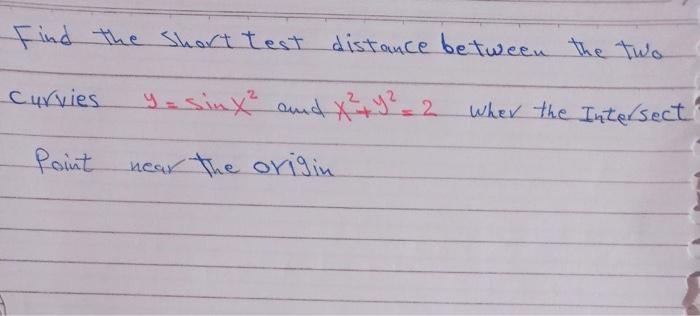 Find the Short test distance between the two
curvies y = sin x² and x²+y²=2 wher the Intersect
Point near the origin